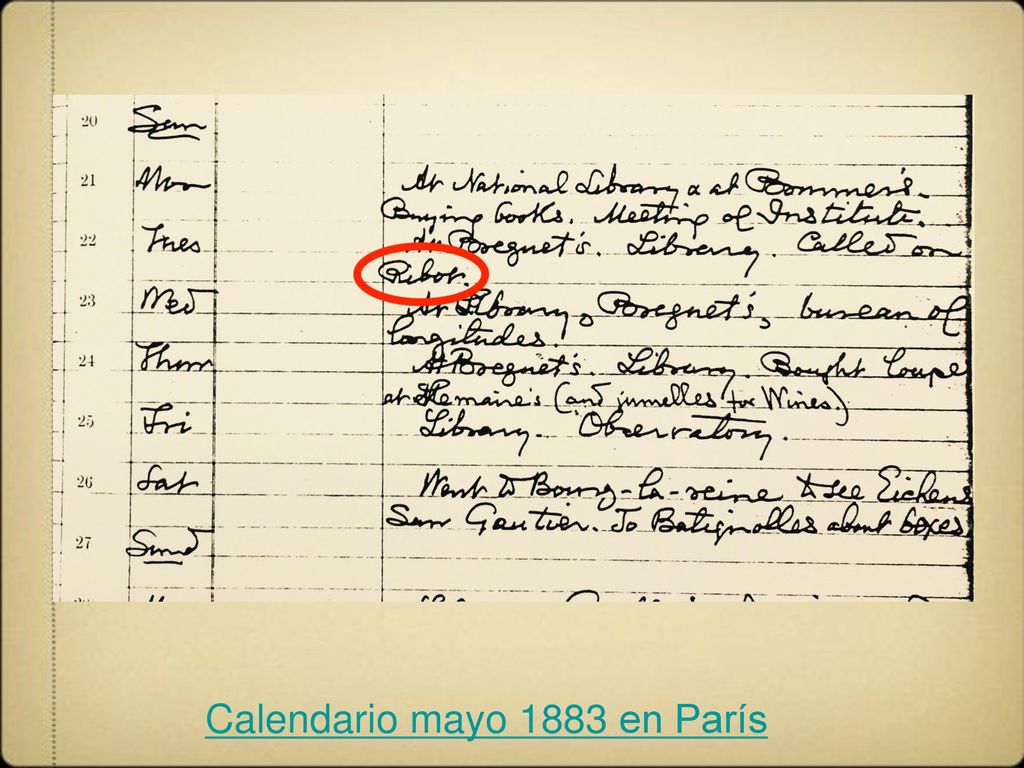 20 Sun
21 Mon At National Library & at Bonmer's.
Buying books. Meeting of Institute.
22 Tues At Breguet's. Library. Called on
Ribot.
23 Wed At Library, Breguet's, bureau of
longitudes.
24 Thur At Breguet's. Library. Bought loupe
at Lemaire's (and jumelles for Wines.)
25 Fri Library. Observatory.
26 Sat Went to Bourg-la-reine to see Eichens
Saw Gautier. To Batignolles about boxes
27 Sund
Calendario mayo 1883 en París